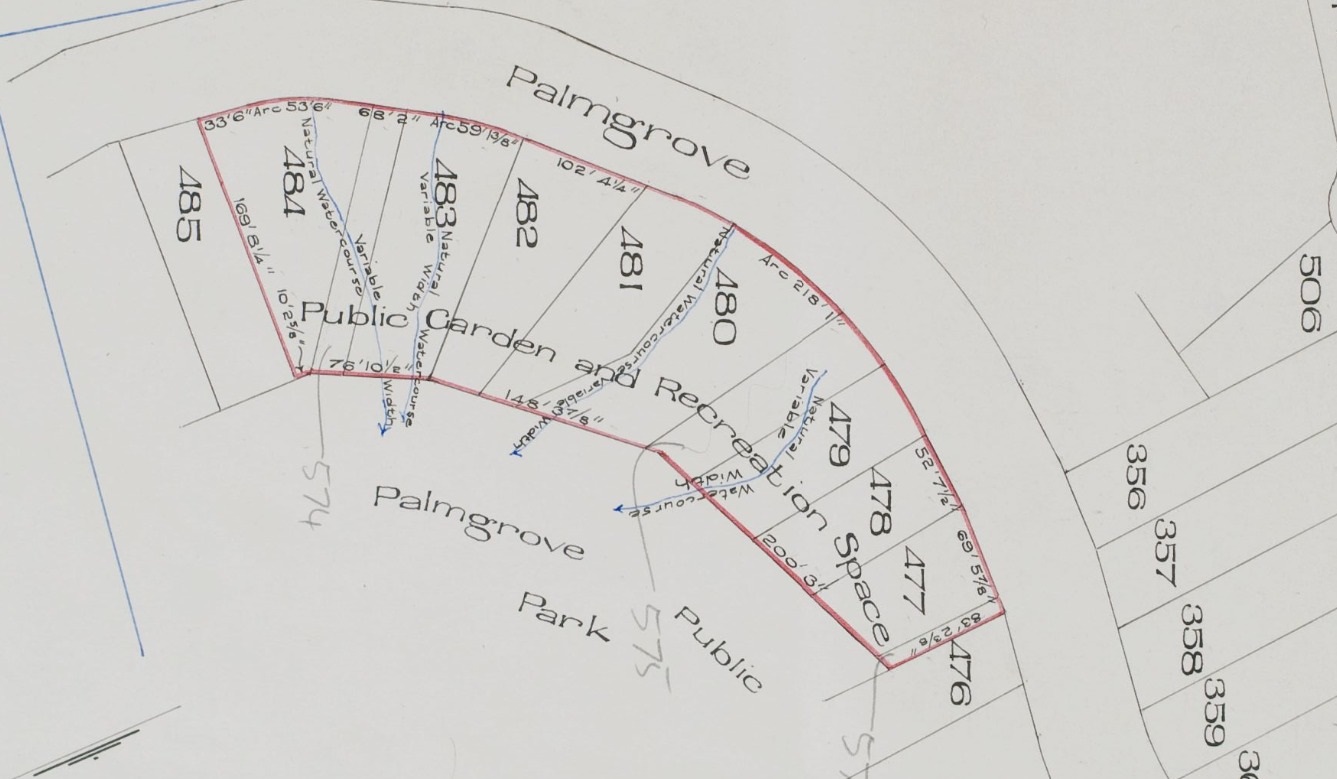 Palmgrove
33'6" Arc 53'6" 68'2" Arc 59'1⅜"
102' 4¼"
Arc 218' 1"
52' 7½"
69' 5⅞"
83' 2⅜"
485
484
483
482
481
480
479
478
477
476
169' 8¼"
10' 2⅝"
76' 10½"
148' 3⅞"
200' 3"
Natural Watercourse Variable Width
Variable Width
Natural Watercourse
Natural Watercourse Variable Width
Natural Watercourse
Variable Width
Public Garden and Recreation Space
Palmgrove
Park
Public
574
575
506
356
357
358
359